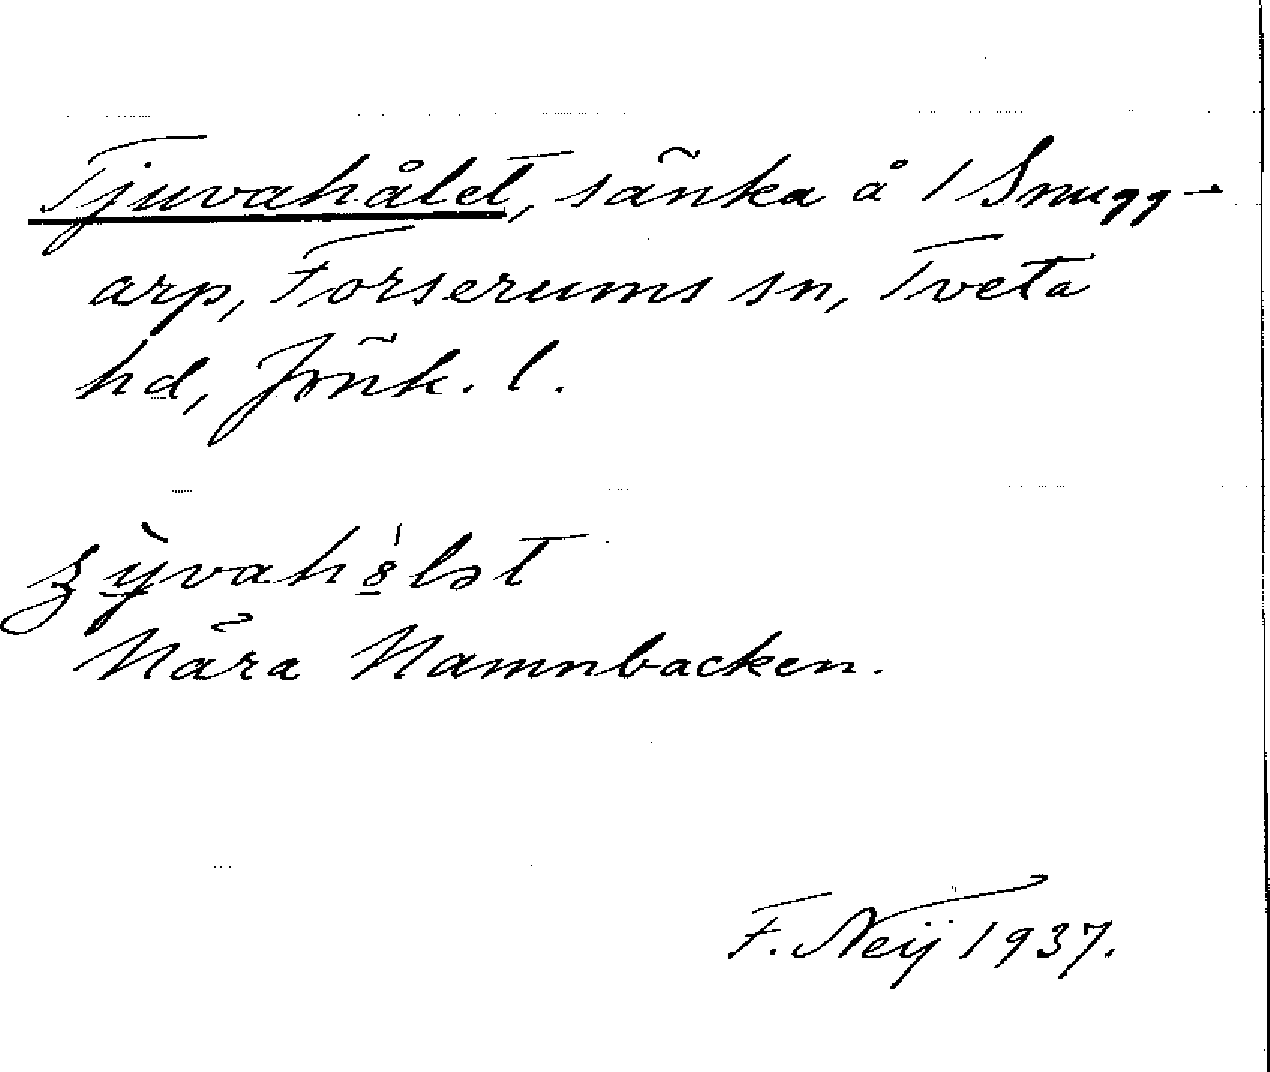 Tjuvahålet, sänka å / Snugg-
arp, Forserums sn, Tveta
hd, Jönk. l.
ʒỳvahólət
Nära Namnbacken.
F. Neij 1937.